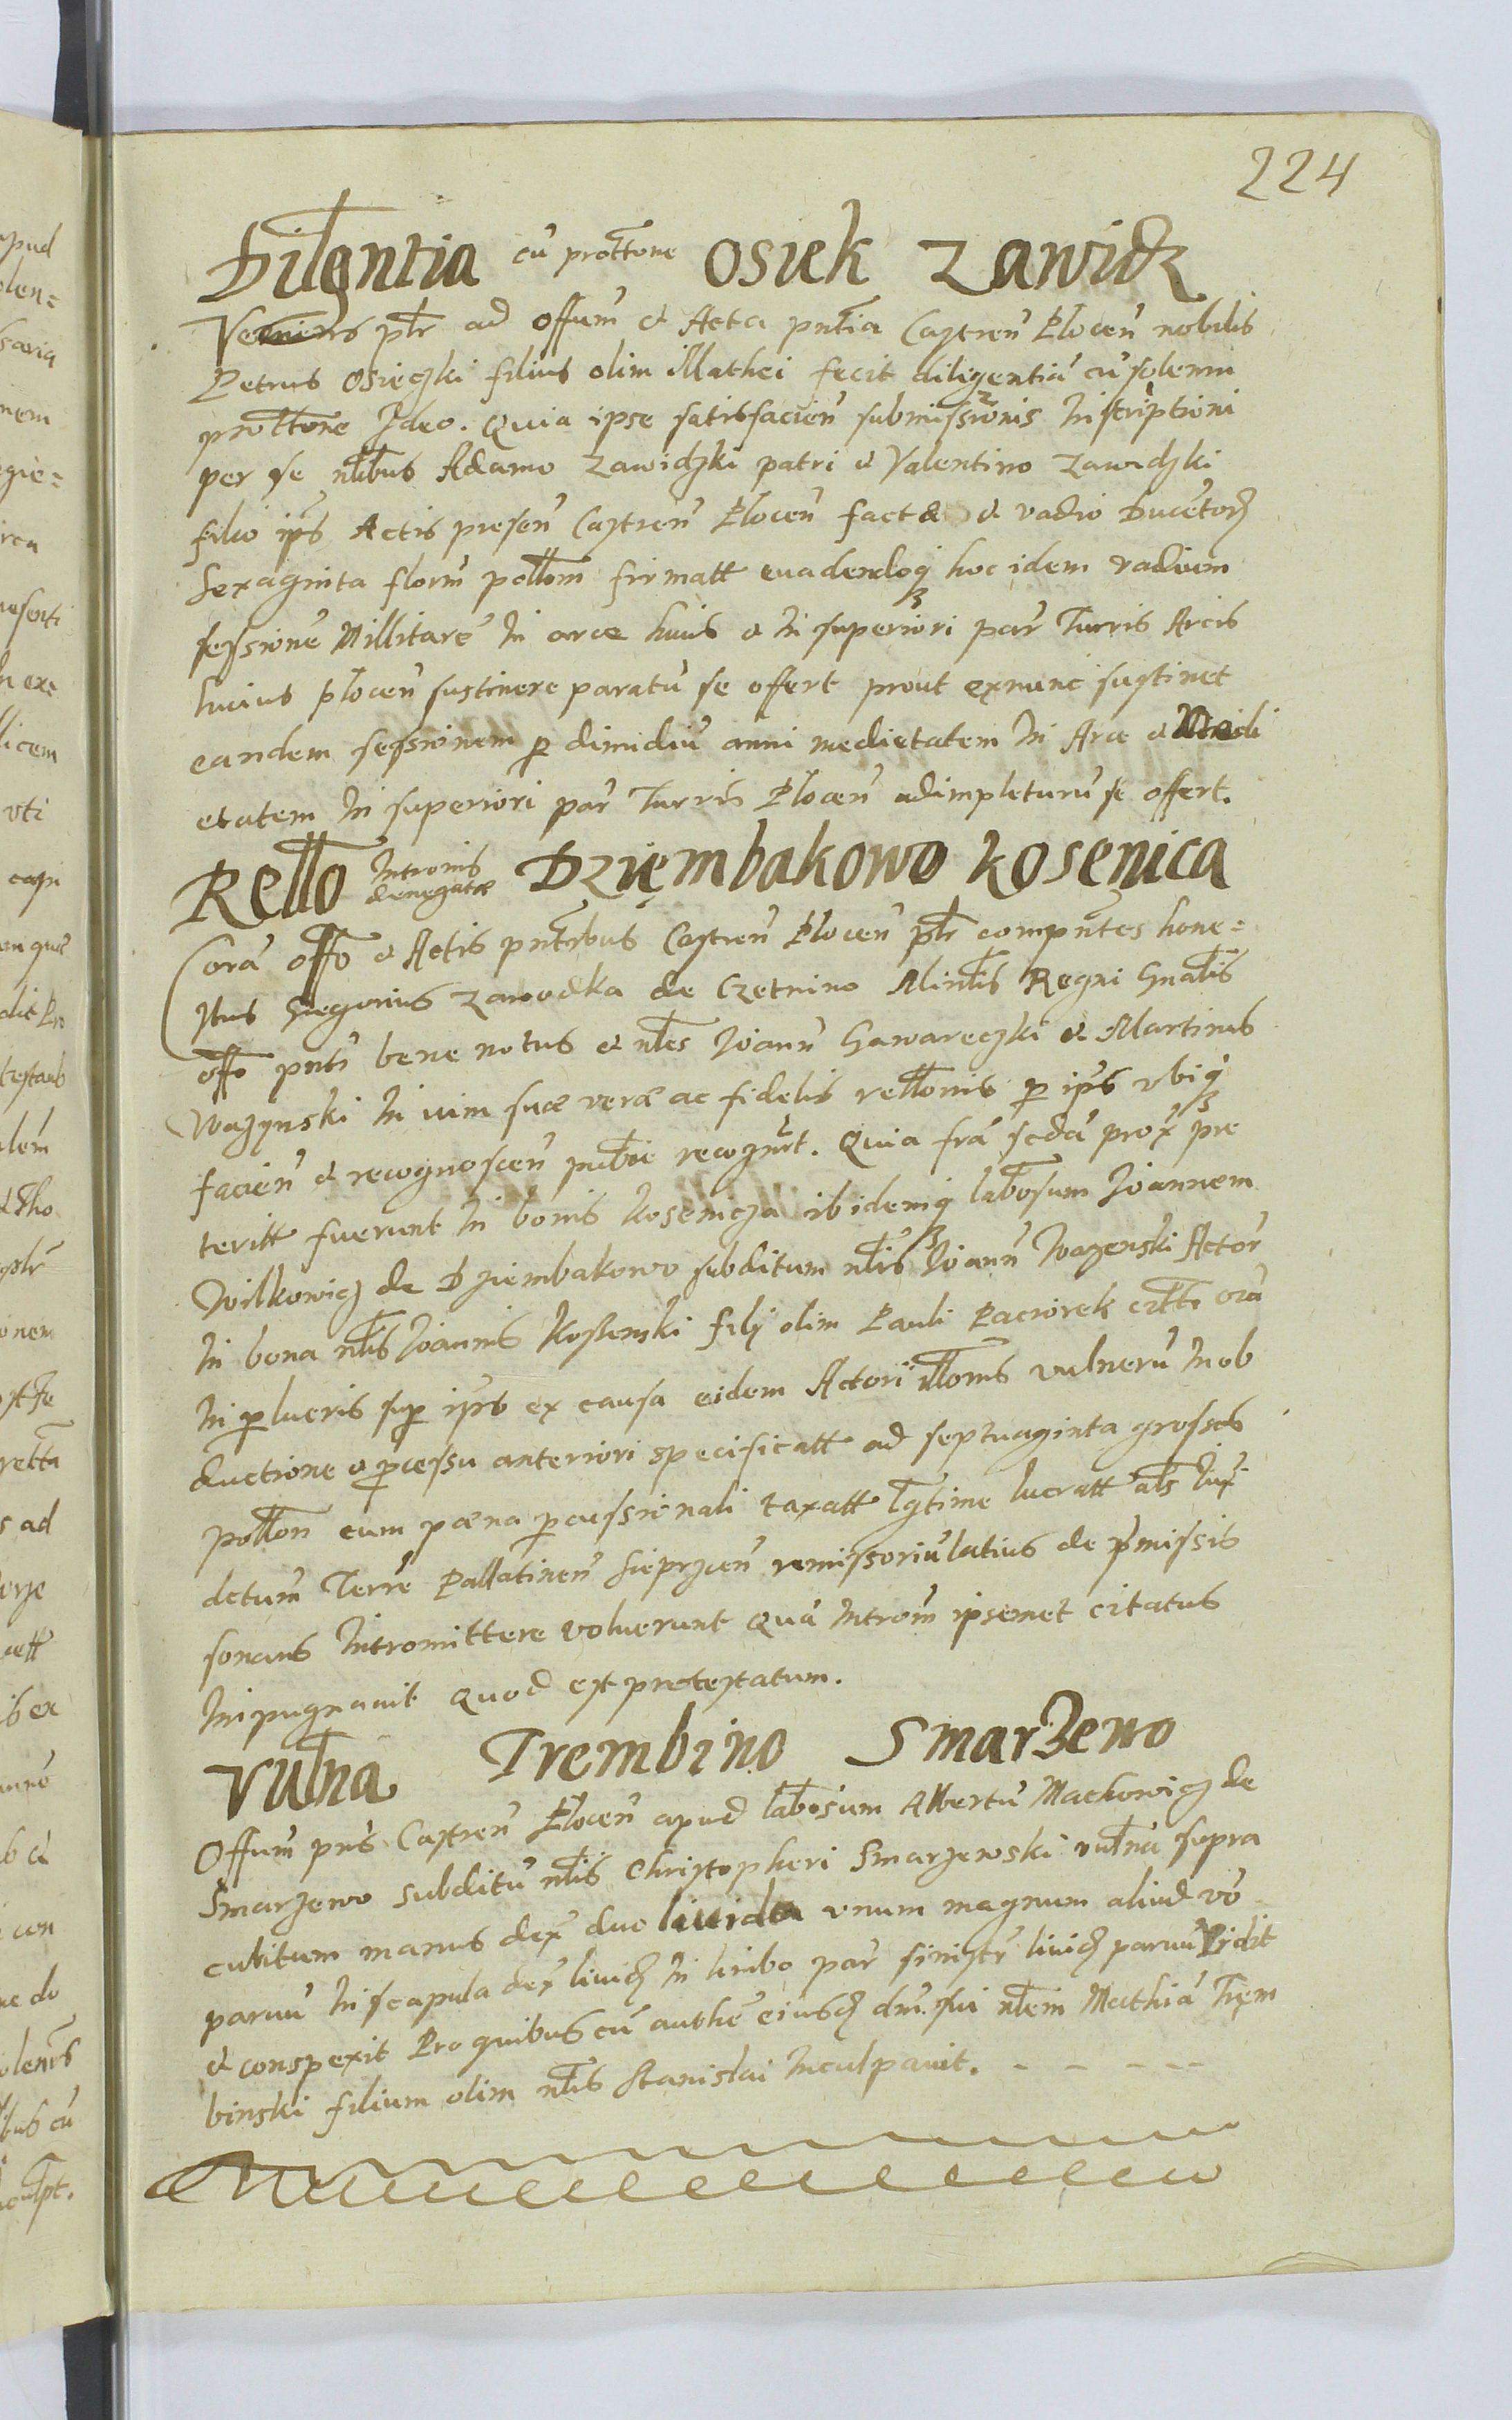 224
Dilgntia cū prottone Osiek Zawidz
Veniens pltr ad offum et Acta pntia Castren Plocen nobilis
Petrus Osieczki filius olim Mathei fecit diligentiā cū solenni
prottone Ideo. Quia ipse satisfacien submissionis Inscriptioni
per se nlibus Adamo Zawidzki patri et Valentino Zawidzki
filio ips Actis presen Castren Plocen factæ et vadio Ducētor
Sexaginta florm pollom firmatt euadendoq hoc idem vadium
sessionē Millitarē In arce huius et In superiori par Turris Arcis
huius Plocen sustinere paratū se offert prout exnunc sustinet
eandem sessionem p dimidiū anni medietatem In Arce et Medi
etatem In superiori par Turris Plocen adimpleturū se offert.
Rello Intronis denegatæ Dziembakowo Kosenica
Corā offo et Actis pntibus Castren Plocen pltr compntes hone=
stus Gregorius Zawodka de Czetnino Minlis Regni Gnalis
offo pnti bene notus et nles Joann Gawareczki et Martinus
Wazynski In vim suæ veræ ac fidelis rellonis p ips vbiq
facien et recognoscen publice recognrt. Quia frā scdā prox pre
teritt fuerunt In bonis Kosenicza ibidemq labosum Joannem
Wilkowicz de Dziembakowo subditum nlis Joann Wazenski Actor
In bona nlis Joannis Kossenski filij olim Pauli Paciorek citti
In plucris sup ips ex causa eidem Actori illonis vulnerū In ob
ductione et pcessu anteriori specificatt ad septuaginta grossos
pollon cum pæna pcussionali taxatt lgtime lucratt als Iux
dctum Terre Pallatinen Sieprzcen remissoriū latius de pmissis
sonans Intromittere voluerunt Quā Introm ipsemet citatus
Inpugnauit quod est protestatum.
Vulna Trembino Smarzewo
Offum pns Castren Plocen apud labosum Albertū Mackowicz de
Smarzewo subditū nlis Christopheri Smarzewski vulna supra
cubitum manus dex duo liuida vnum magnum aliud vo
paruū In scapula dex liuid In limbo par sinistr liuid paruū Vidit
et conspexit Pro quibus cū authē eiusd dni sui nlem Mathiā Trem
binski filium olim nlis Stanislai Inculpauit. - - - --